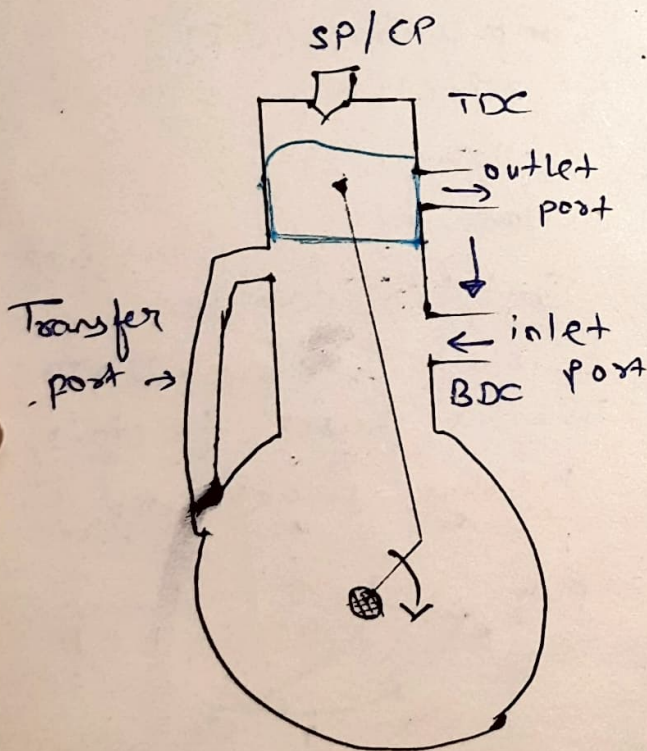 SP/CP
TDC
outlet
port
Transfer
port
inlet
port
BDC